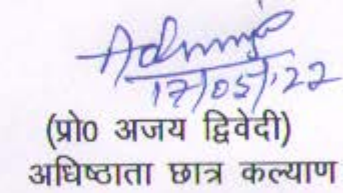 17/05/22
(प्रो0 अजय द्विवेदी)
अधिष्ठाता छात्र कल्याण